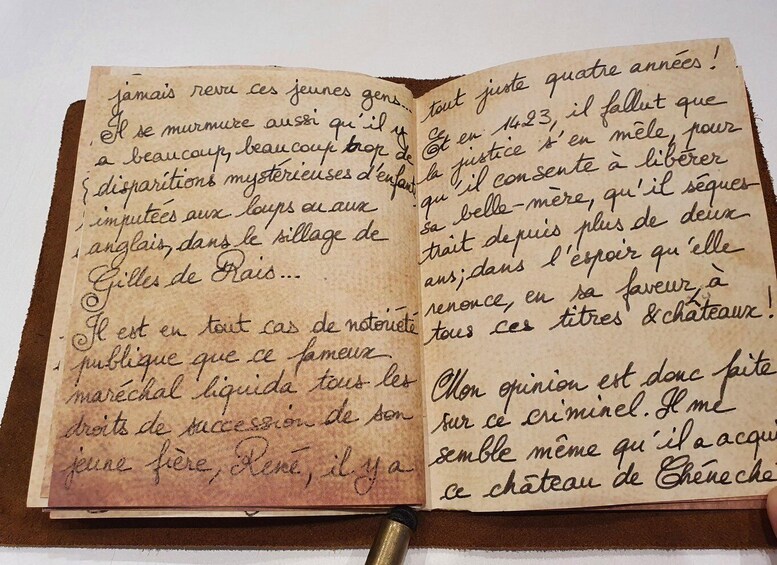 jamais revu ces jeunes gens...
Il se murmure aussi qu'il y
a beaucoup, beaucoup trop de
disparitions mystérieuses d'enfants
imputées aux loups ou aux
anglais, dans le sillage de
Gilles de Rais...
Il est en tout cas de notoriété
publique que ce fameux
maréchal liquida tous les
droits de succession de son
jeune frère, René, il y a
tout juste quatre années !
Et en 1423, il fallut que
la justice s'en mêle, pour
qu'il consente à libérer
sa belle-mère, qu'il séques-
trait depuis plus de deux
ans ; dans l'espoir qu'elle
renonce, en sa faveur, à
tous ces titres & châteaux !
Mon opinion est donc faite
sur ce criminel. Il me
semble même qu'il a acqui
ce château de Chéneché